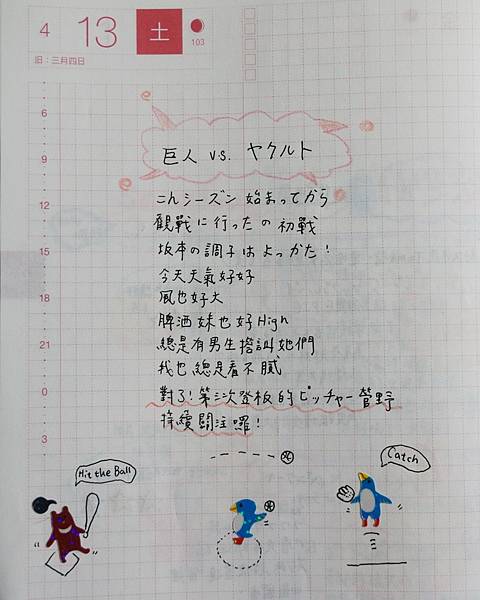 4 13 土
103
旧：三月四日
6
9
12
15
18
21
0
3
巨人 vs. ヤクルト
こんシーズン 始まってから
観戰に行ったの初戰
坂本の調子はよっかた！
今天天氣好好
風也好大
脾酒妹也好High
總是有男生搭訕她們
我也總是看不膩
對了！第三次登板的ピッチャー菅野
持續關注囉！
Hit the Ball
Catch